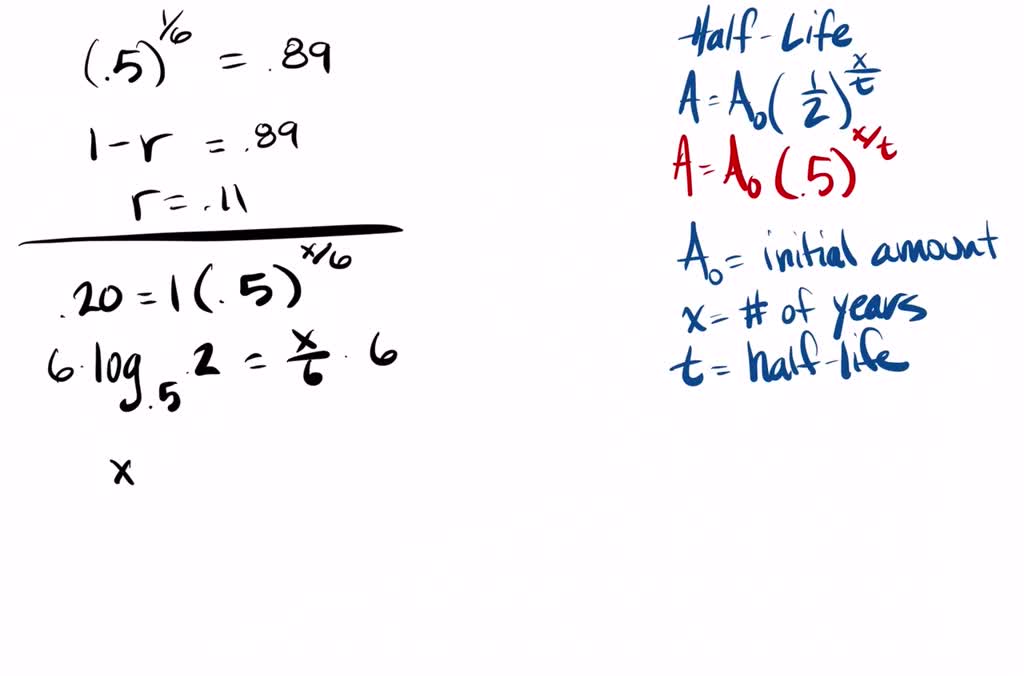 (.5)^{1/6} = .89
1-r = .89
r = .11
.20 = 1(.5)^{x/6}
6·log_{.5} .2 = x/6 · 6
x
Half-Life
A = A₀(1/2)^{x/t}
A = A₀(.5)^{x/t}
A₀ = initial amount
x = # of years
t = half-life